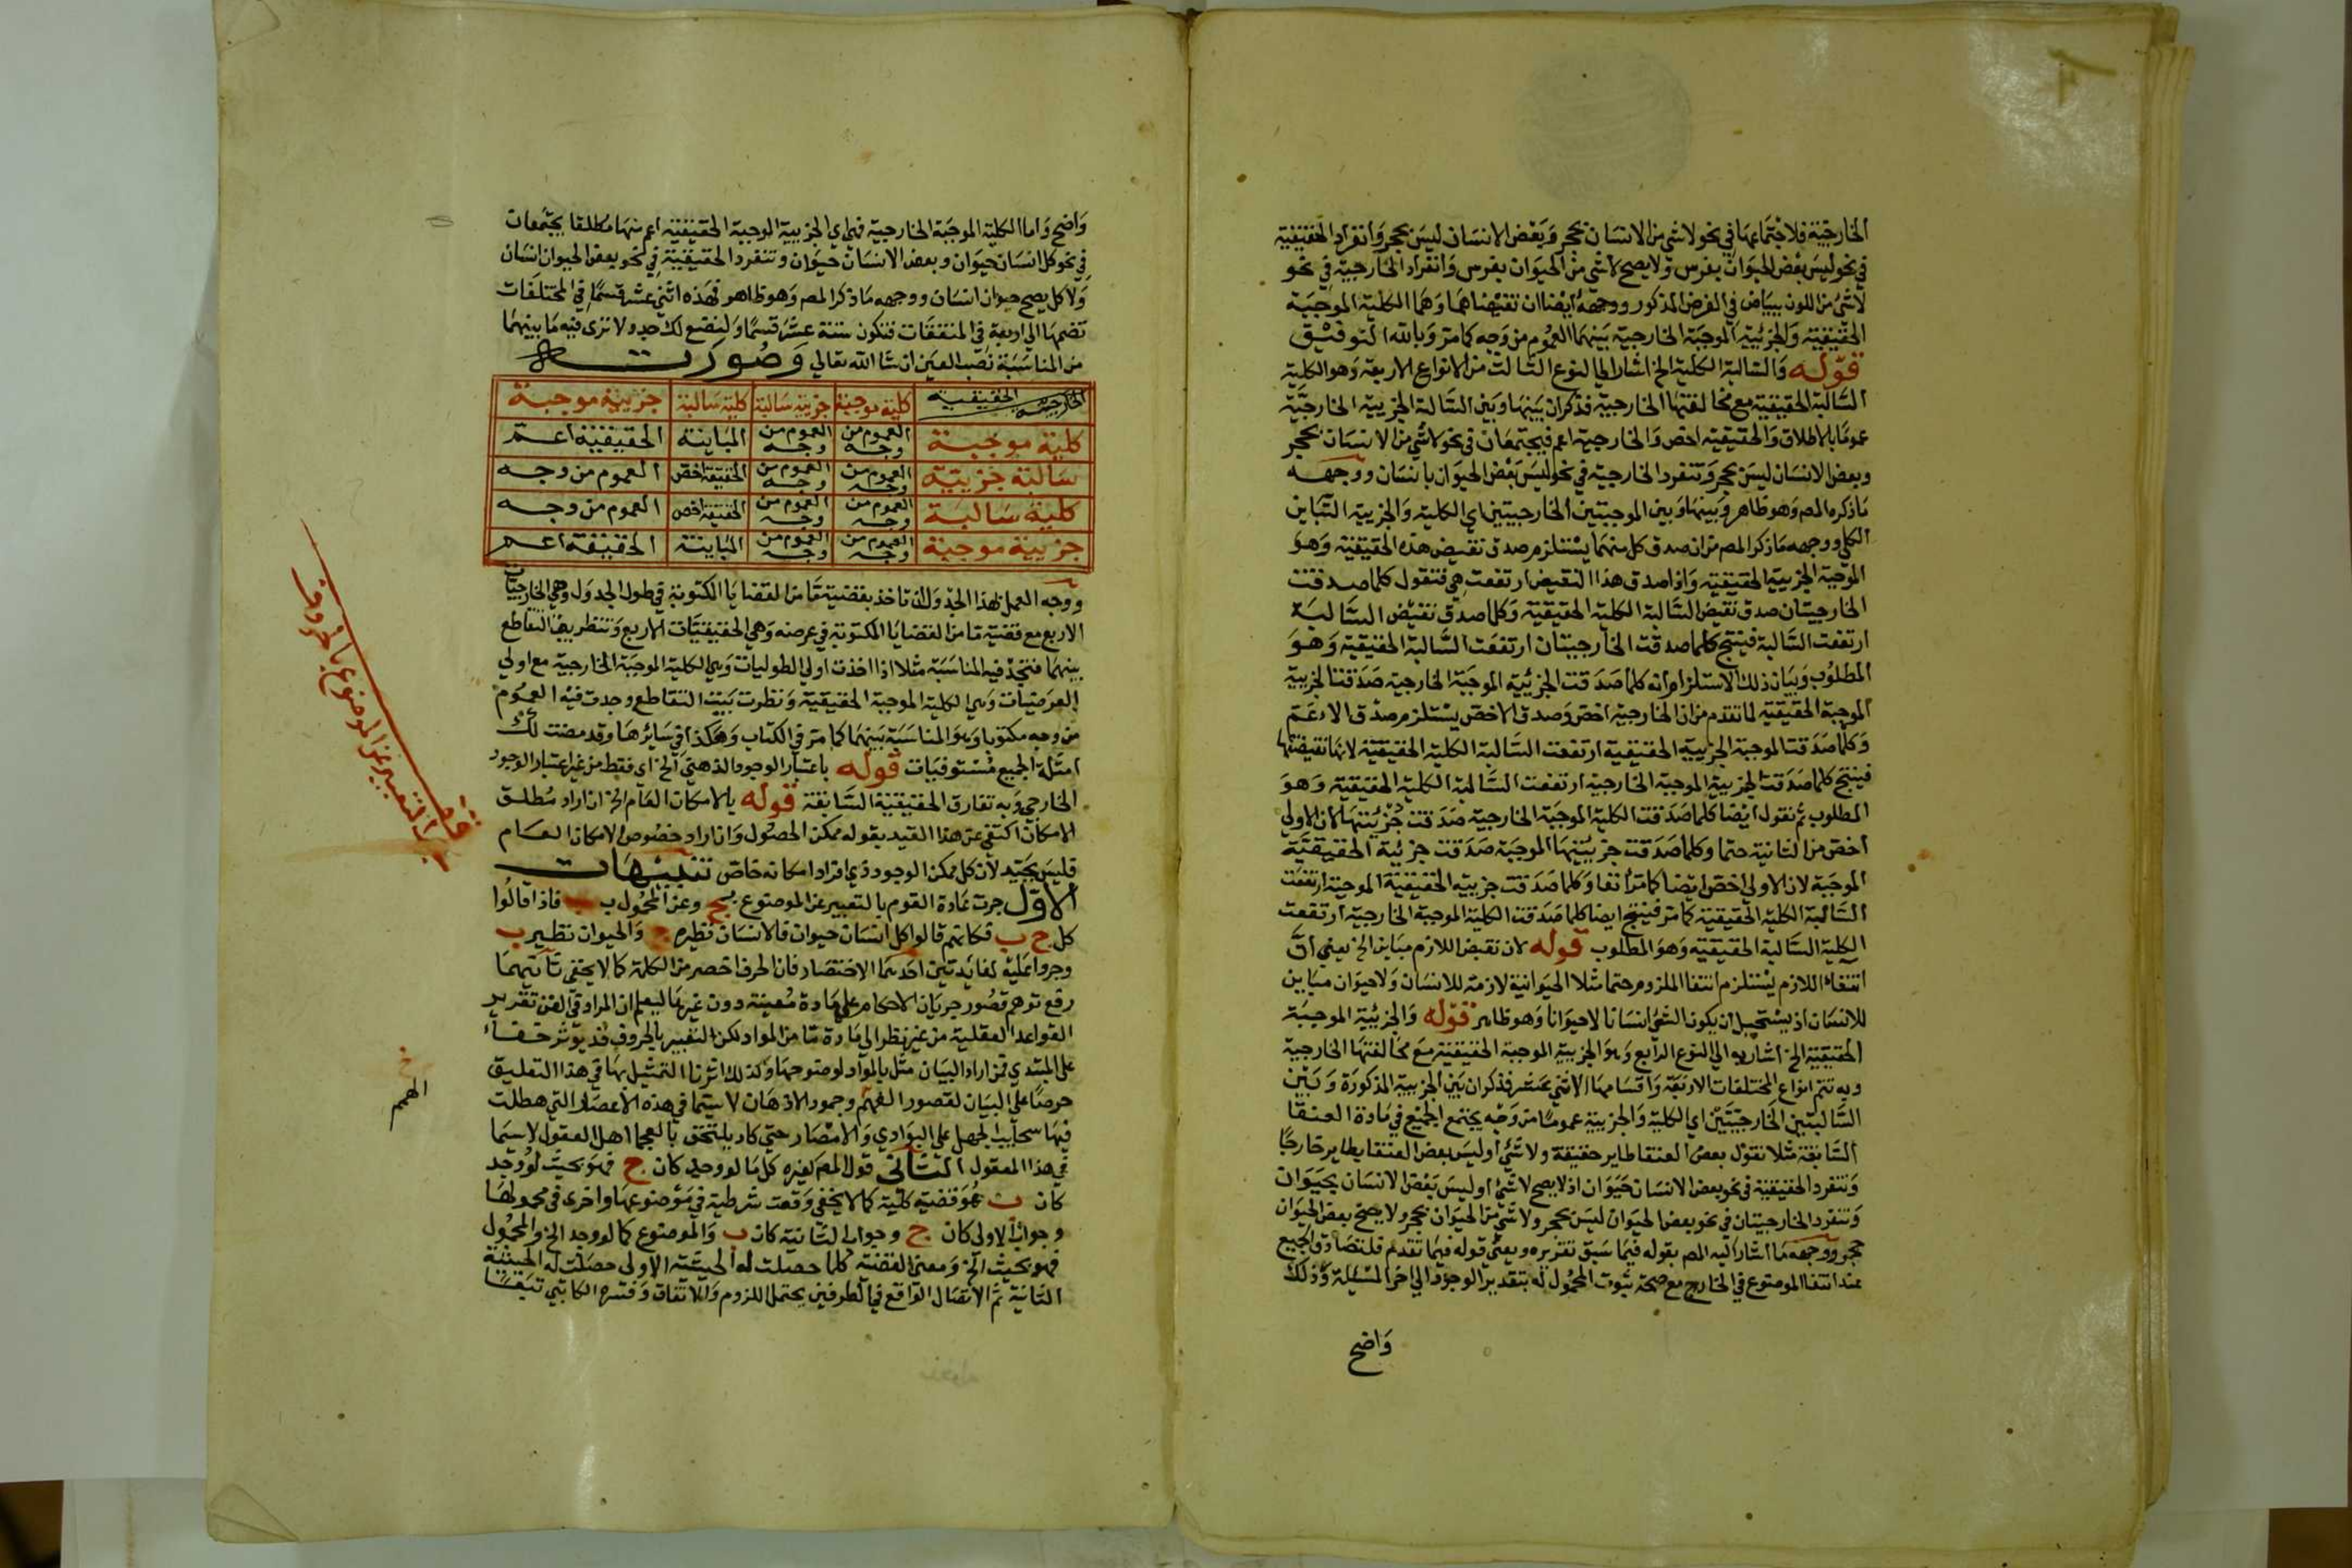 الخارجية فلاجتماعها في نحو لاشي من الانسان بحجر وبعض الانسان ليس بحجر وانفراد الحقيقية
في نحو ليس بعض الحيوان بفرس ولا يصح لاشي من الحيوان بفرس وانفراد الخارجية في نحو
لاشئ من اللون ببياض في الفرض المذكور ووجهه ايضا ان نقيضاهما وهما الكلية الموجبة
الحقيقية والجزئية الموجبة الخارجية بينهما العموم من وجه كما مر وبالله التوفيق
قوله والسالبة الكلية الخ اشار الى النوع الثالث من الانواع الاربعة وهو الكلية
السالبة الحقيقية مع مخالفتها الخارجية فذكر ان بينها وبين السالبة الجزيية الخارجية
عموما بالاطلاق والحقيقية اخص والخارجية اعم فيجتمعان في نحو لاشي من الانسان بحجر
وبعض الانسان ليس بحجر وتنفرد الخارجية في نحو ليس بعض الحيوان بانسان ووجهه
ماذكره المص وهو ظاهر وبينها وبين الموجبتين الخارجيتين اي الكلية والجزيية التباين
الكلي ووجهه ماذكر المص من ان صدق كل منهما يستلزم صدق نقيض هذه الحقيقية وهو
الموجبة الجزيية الحقيقية واذا صدق هذا النقيض ارتفعت هي فتقول كلما صدقت
الخارجيتان صدق نقيض السالبة الكلية الحقيقية وكلما صدق نقيض السالبة
ارتفعت السالبة فينتج كلما صدقت الخارجيتان ارتفعت السالبة الحقيقية وهو
المطلوب وبيان ذلك الاستلزام انه كلما صدقت الجزئية الموجبة الخارجية صدقت الجزيية
الموجبة الحقيقية لما تقدم من ان الخارجية اخص وصدق الاخص يستلزم صدق الاعم
وكلما صدقت الموجبة الجزيية الحقيقية ارتفعت السالبة الكلية الحقيقية لانها نقيضتها
فينتج كلما صدقت الجزيية الموجبة الخارجية ارتفعت السالبة الكلية الحقيقية وهو
المطلوب ثم نقول ايضا كلما صدقت الكلية الموجبة الخارجية صدقت جزئيتها لان الاولى
اخص من الثانية حتما وكلما صدقت جزييتها الموجبة صدقت جزئية الحقيقية
الموجبة لان الاولى اخص ايضا كما مر انفا وكلما صدقت جزيية الحقيقية الموجبة ارتفعت
السالبة الكلية الحقيقية كما مر فينتج ايضا كلما صدقت الكلية الموجبة الخارجية ارتفعت
الكلية السالبة الحقيقية وهو المطلوب قوله لان نقيض اللازم مباين الخ يعني ان
انتفاء اللازم يستلزم انتفا الملزوم حتما مثلا الحيوانية لازمة للانسان ولاحيوان مباين
للانسان اذ يستحيل ان يكون الشئ انسانا لاحيوانا وهو ظاهر قوله والجزئية الموجبة
الحقيقية الخ اشار به الى النوع الرابع وهو الجزيية الموجبة الحقيقية مع مخالفتها الخارجية
وبه تتم انواع المختلفات الاربعة واقسامها الاثني عشر فذكر ان بين الجزيية المذكورة وبين
السالبتين الخارجيتين اي الكلية والجزيية عموما من وجه يجتمع الجميع في مادة العنقا
السابقة مثلا نقول بعض العنقا طاير حقيقة ولاشئ او ليس بعض العنقا بطاير خارجا
وتنفرد الحقيقية في نحو بعض الانسان حيوان اذ لا يصح لاشئ او ليس بعض الانسان بحيوان
وتنفرد الخارجيتان في نحو بعض الحيوان ليس بحجر ولاشي من الحيوان بحجر ولا يصح بعض الحيوان
حجر ووجهه ما اشار اليه المص بقوله فيما سبق تقريره ويعني قوله فيما تقدم فلتصادق الجميع
عند انتفا الموضوع في الخارج مع صحة ثبوت المحمول له بتقدير الوجود الى اخر المسئلة وذلك
واضح
واضح واما الكلية الموجبة الخارجية فهي اي الجزيية الموجبة الحقيقية اعم منها مطلقا يجتمعان
في نحو كل انسان حيوان وبعض الانسان حيوان وتنفرد الحقيقية في نحو بعض الحيوان انسان
ولا كل يصح حيوان انسان ووجهه ماذكر المص وهو ظاهر فهذه اثني عشر قسما في المختلفات
تضمها الى اربعة في المتفقات فتكون ستة عشر قسما ولنضع لك جدولا ترى فيه ما بينهما
من المناسبة نصب العين ان شا الله تعالى وصورته
الخارجية الحقيقية | كلية موجبة | جزيية سالبة | كلية سالبة | جزيية موجبة
كلية موجبة | العموم من وجه | العموم من وجه | المباينة | الحقيقية اعم
سالبة جزيية | العموم من وجه | العموم من وجه | الحقيقية اخص | العموم من وجه
كلية سالبة | العموم من وجه | العموم من وجه | الحقيقية اخص | العموم من وجه
جزيية موجبة | العموم من وجه | العموم من وجه | المباينة | الحقيقة اعم
ووجه العمل بهذا الجدول ان تاخذ بقضية ما من القضايا المكتوبة في طول الجدول وهي الخارجيات
الاربع مع قضية ما من القضايا المكتوبة في عرضه وهي الحقيقيات الاربع وتنظر بيت التقاطع
بينهما فتجد فيه المناسبة مثلا اذا اخذت اولى الطوليات وهي الكلية الموجبة الخارجية مع اولى
العرضيات وهي الكلية الموجبة الحقيقية ونظرت بيت التقاطع وجدت فيه العموم
من وجه مكتوبا وهو المناسبة بينهما كما مر في الكتاب وهكذا في سائرها وقد مضت لك
امثلة الجميع مستوفيات قوله باعتبار الوجود الذهني الخ اي فقط من غير اعتبار الوجود
الخارجي وبه تفارق الحقيقية السابقة قوله بالامكان العام الخ ان اراد مطلق
الامكان اكتفى عن هذا القيد بقوله ممكن الحصول وان اراد خصوص الامكان العام
فليس بجيد لان كل ممكن الوجود ذي افراد امكانه خاص تنبيهات
الاول جرت عادة القوم بالتعبير عن الموضوع بج وعن المحمول بب فاذا قالوا
كل ج ب فكانهم قالوا كل انسان حيوان فالانسان نظيره ج والحيوان نظير ب
وجروا عليه لفائدتين احديهما الاختصار فان الحرف اخصر من الكلمة كما لا يخفى ثانيتهما
رفع توهم قصور جريان الاحكام على مادة معينة دون غيرها ليعلم ان المراد في الفن تقرير
القواعد العقلية من غير نظر الى مادة ما من المواد لكن التعبير بالحروف قد يوثر خفاء
على المبتدي فمن اراد البيان مثل بالمواد لوضوحها وكذلك اثرنا التمثيل بها في هذا التعليق
حرصا على البيان لقصور الفهم وجمود الاذهان لا سيما في هذه الاعصار التي هطلت
فيها سحايب الجهل على البوادي والامصار حتى كاد يلتحق بالعجما اهل العقول لاسيما
في هذا المعقول الثاني قول المص كغيره كل ما لو وجد كان ج فهو بحيث لو وجد
كان ب هو قضية كلية كما لا يخفى وقعت شرطية في موضوعها واخرى في محمولها
وجواب الاولى كان ج وجواب الثانية كان ب والموضوع كما لو وجد الخ والمحمول
فهو بحيث الخ ومعنى القضية كلما حصلت له الحيثية الاولى حصلت له الحيثية
الثانية ثم الاتصال الواقع في الطرفين يحتمل اللزوم والاتفاق وفسره الكاتبي تبعا
قف
على التعبير عن الموضوع بالحروف
الهمم